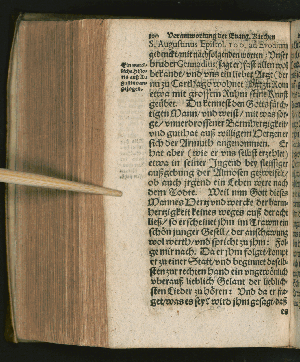 Verantwortung der Evang. Kirchen
S. Augustinus Epistol. 100. ad Evodium
gedenckt mit nachfolgenden worten: Unser
bruder Gennadius (sagt er) fast allen wol
bekandt / und uns ein lieber Artzt / der
zu Carthago wohnet
etwa mit grossem Ruhm seine Kunst
geübet. Du kennest den Gottsförch-
tigen Mann / und weist / mit was sor-
ge / unverdrossener Barmhertzigkeit
und gutthat auß willigem Hertzen er
sich der Armuth angenommen. Er
hat aber (wie er uns selbst erzehlet)
etwa in seiner Jugend bey fleissiger
außgebung der Almosen gezweiffelt /
ob auch irgend ein Leben were nach
dem Todte. Weil nun Gott dieses
Mannes Hertz und wercke der barm-
hertzigkeit keines weges auß der acht
ließ / so erscheinet jhm im Traum ein
schön junger Gesell / der anschawung
wol werth / und spricht zu jhm: Fol-
ge mir nach. Da er jhm folget / kompt
er zu einer Statt / und beginnet da selb-
sten zur rechten hand ein ungewönlich
uberauß lieblich Gesang der lieblich-
sten Lieder zu hören: Und da er fra-
get / was es sey? wird jhm gesagt / daß
es